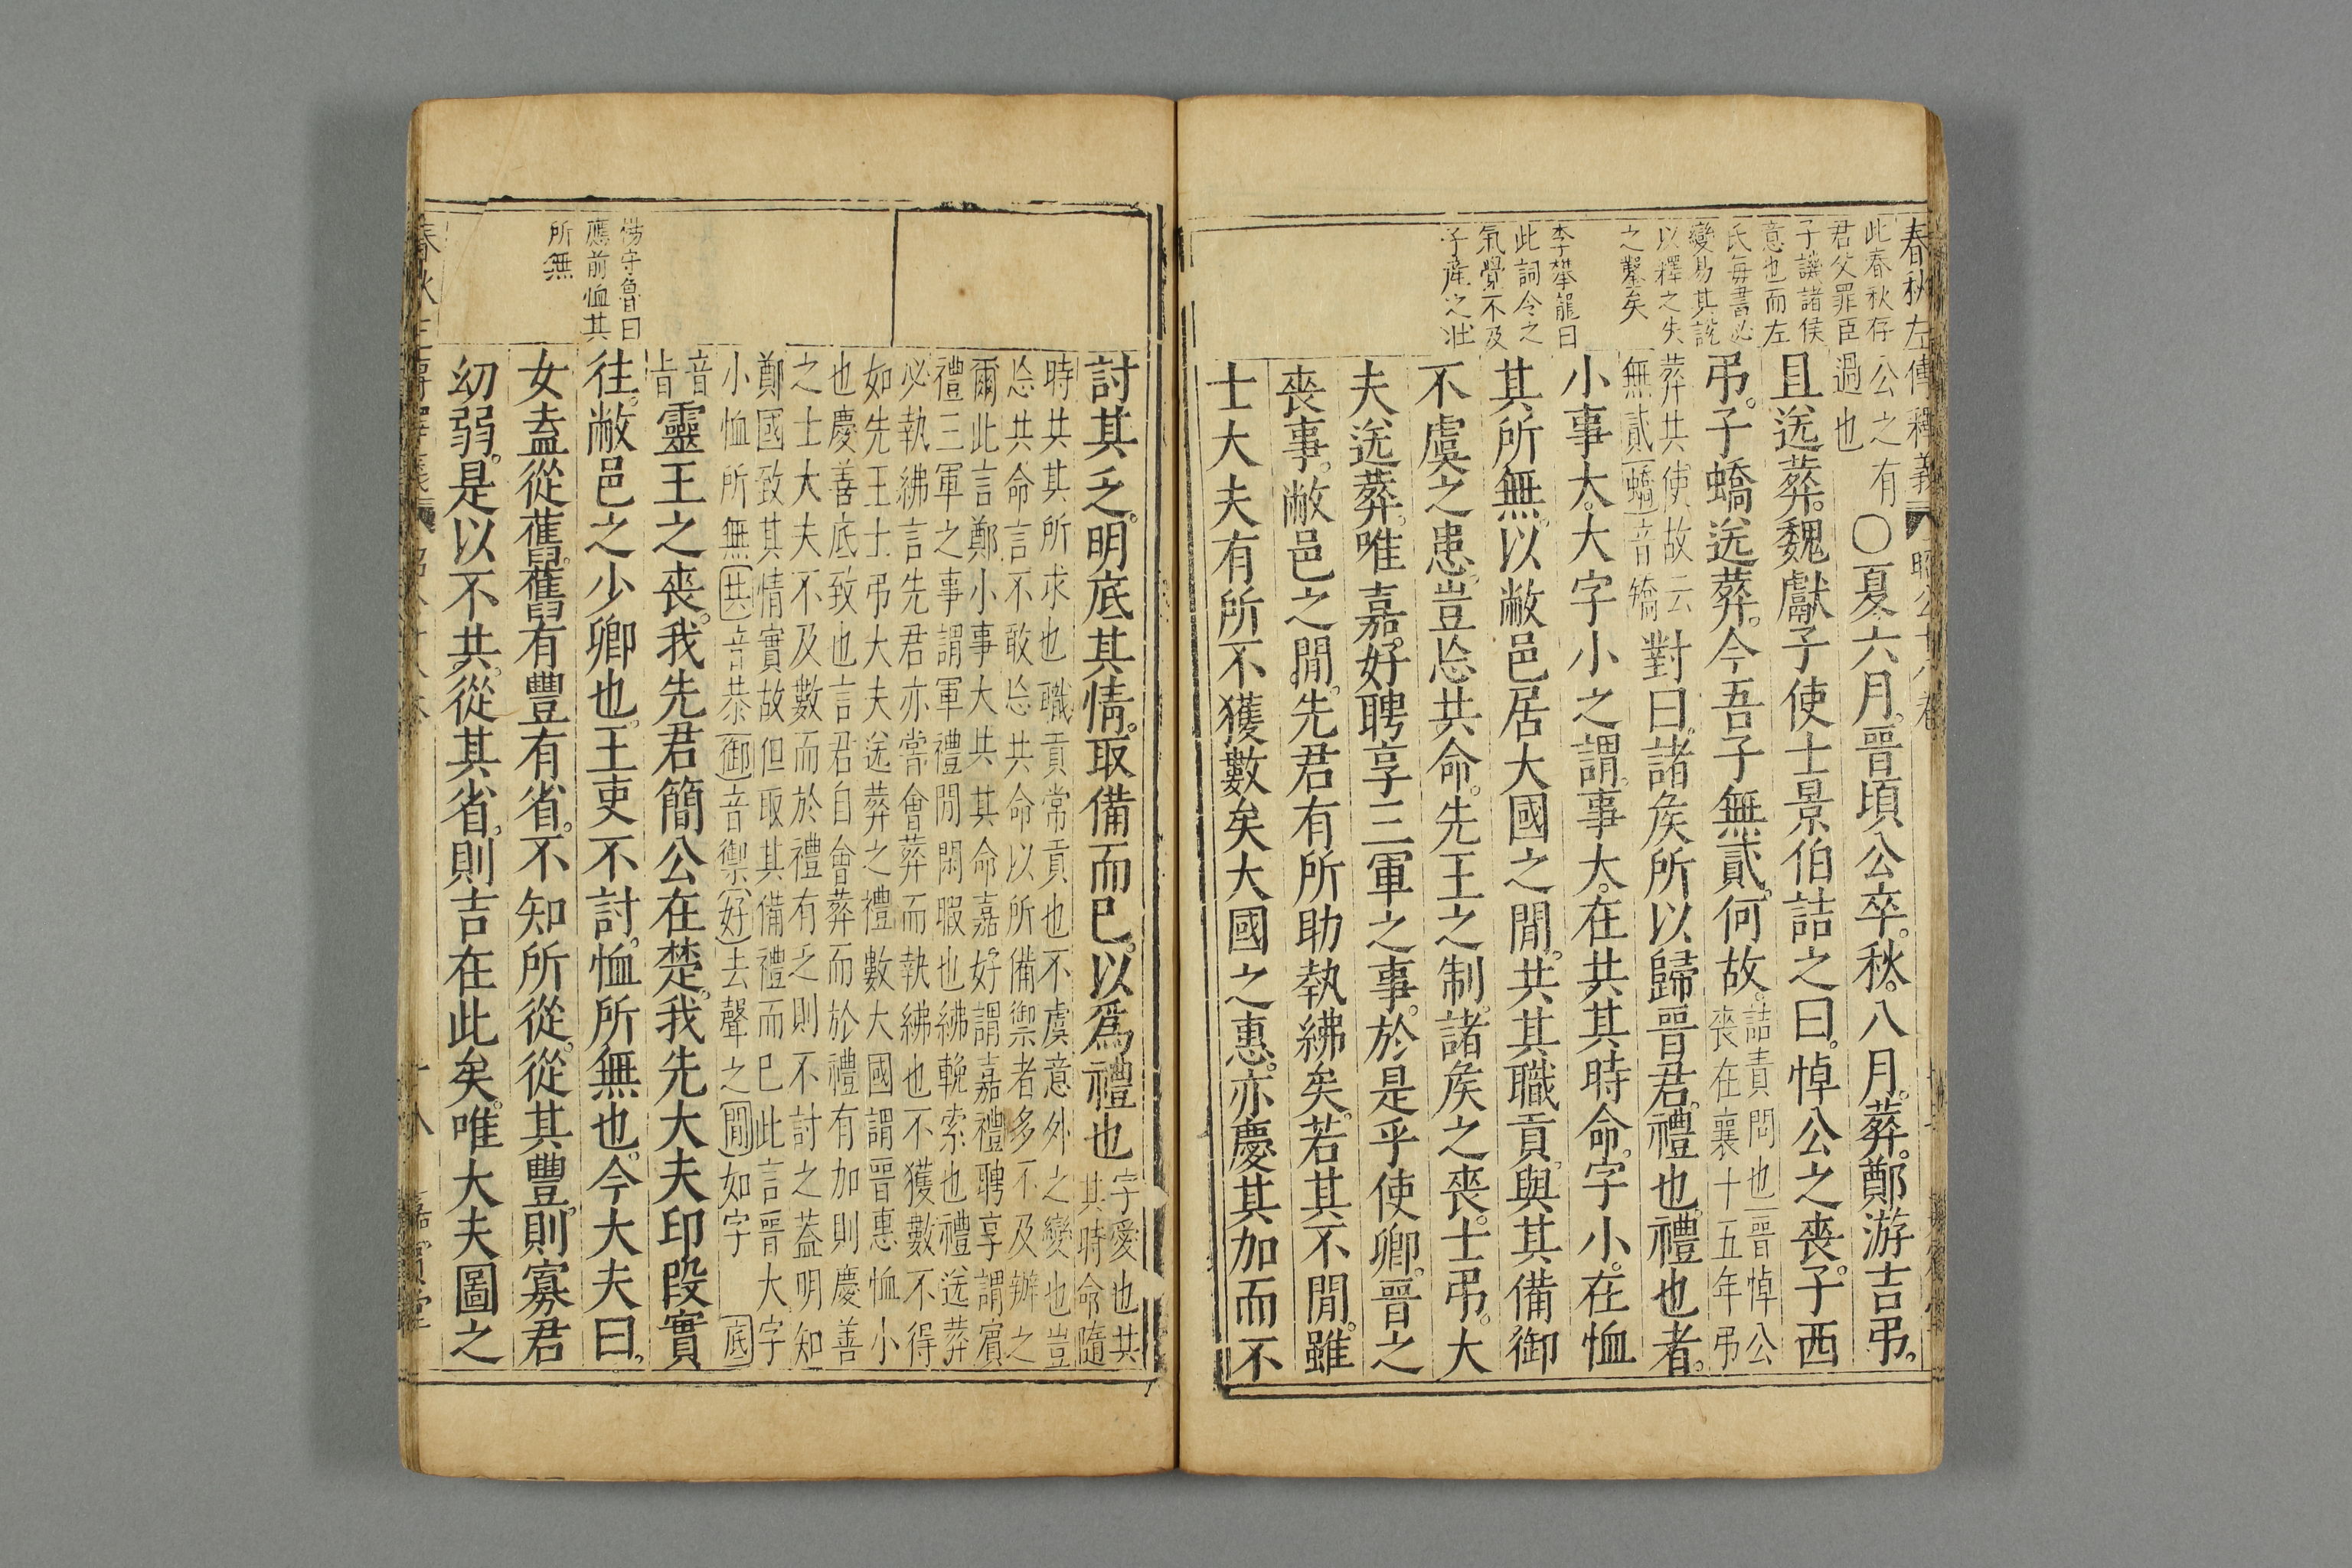 春秋左傳釋義
此春秋存
君父罪臣
子譏諸侯
意也而左
氏每書必
變易其說
以釋之失
之鑿矣
李攀龍曰
此詞令之
氣覺不及
子產之壯
公之有
過也
〇夏六月。晉頃公卒。秋。八月。葬。鄭游吉弔。
且送葬。魏獻子使士景伯詰之曰。悼公之喪。子西
弔。子蟜送葬。今吾子無貳。何故。
詰責問也晉悼公
喪在襄十五年弔
葬共使故云
無貳蟜音矯
對曰。諸矦所以歸晉君。禮也。禮也者。
小事大。大字小之謂。事大。在共其時命。字小。在恤
其所無。以敝邑居大國之閒。共其職貢。與其備御
不虞之患。豈忘共命。先王之制。諸矦之喪。士弔。大
夫送葬。唯嘉好聘享三軍之事。於是乎使卿。晉之
喪事。敝邑之閒。先君有所助執紼矣。若其不閒。雖
士大夫有所不獲數矣大國之惠。亦慶其加而不
討其乏。明底其情。取備而已。以爲禮也
字愛也共
其時命隨
時共其所求也職貢常貢也不虞意外之變也豈
忘共命言不敢忘共命以所備禦者多不及辦之
爾此言鄭小事大共其命嘉好謂嘉禮聘享謂賓
禮三軍之事謂軍禮閒閑暇也紼輓索也禮送葬
必執紼言先君亦嘗會葬而執紼也不獲數不得
如先王士弔大夫送葬之禮數大國謂晉惠恤小
也慶善底致也言君自會葬而於禮有加則慶善
之士大夫不及數而於禮有乏則不討之蓋明知
鄭國致其情實故但取其備禮而已此言晉大字
小恤所無共音恭御音禦好去聲之閒如字底
音
旨
靈王之喪。我先君簡公在楚。我先大夫印段實
往。敝邑之少卿也。王吏不討。恤所無也。今大夫曰。
女盍從舊。舊有豐有省。不知所從。從其豐。則寡君
幼弱。是以不共。從其省。則吉在此矣。唯大夫圖之
守魯曰
應前恤其
所無